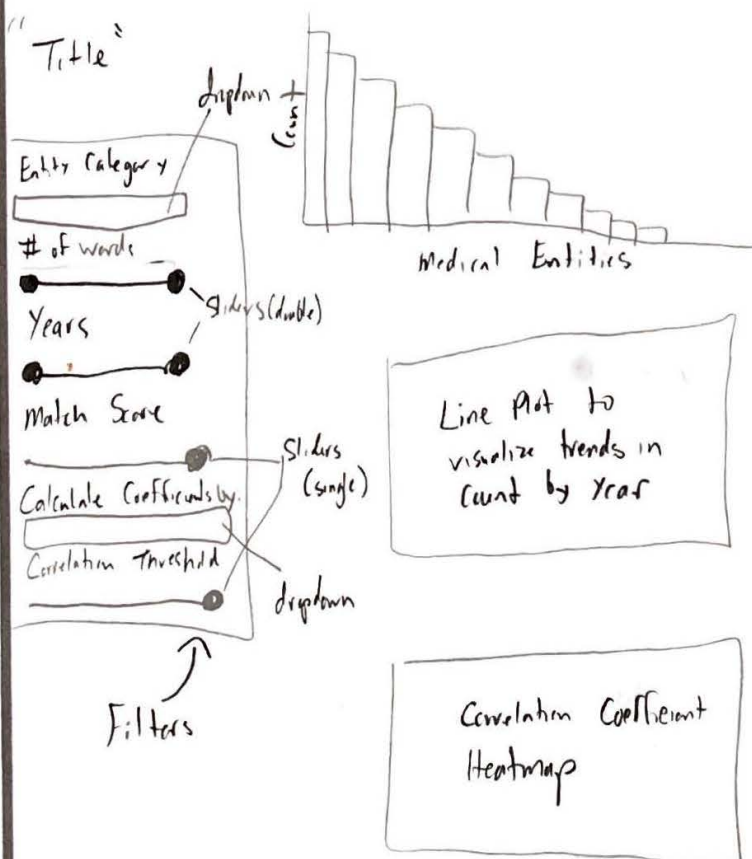 "Title"
dropdown
Count
Medical Entities
Entity Category
# of words
Sliders (double)
Years
Match Score
Sliders
(single)
Calculate Coefficients by:
Correlation Threshold
dropdown
Filters
Line Plot to
visualize trends in
Count by Year
Correlation Coefficient
Heatmap